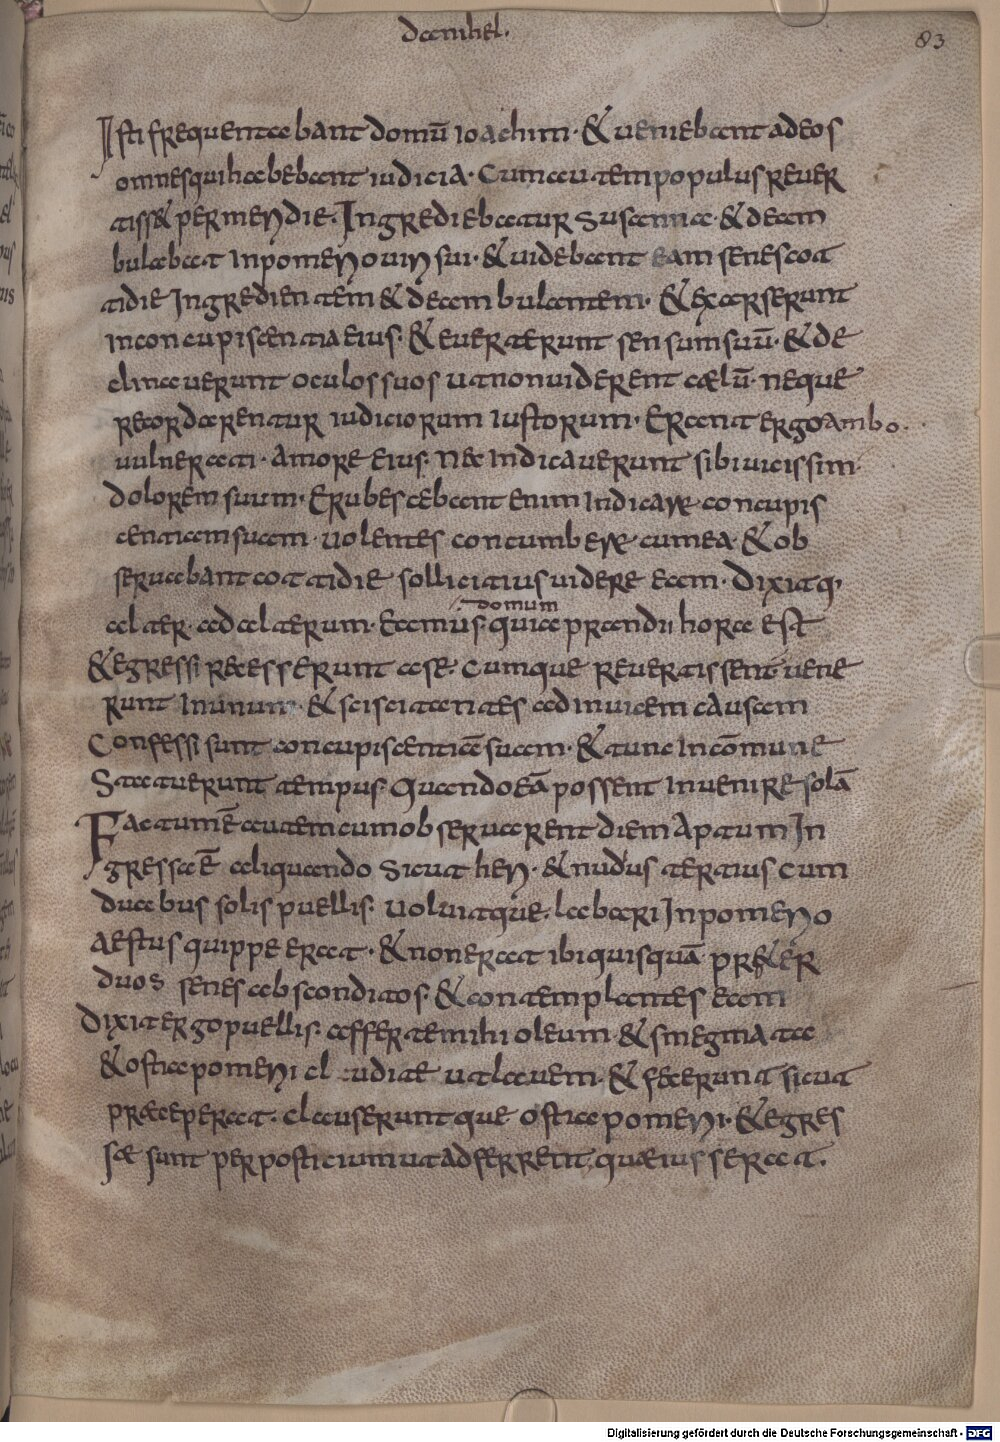 danihel.
83
Isti frequentabant domū ioachim · & veniebant ad eos
omnes qui habebant iudicia · Cum autem populus rever
tiss& per meridie · Ingrediebatur susanna · & deam
bulabat in pomerio viri sui · & videbant eam senes cot
tidie Ingredientem & deambulantem · & exarserunt
in concupiscentia eius · & everterunt sensum suū · & de
clinaverunt oculos suos ut non viderent cælū · neque
recordarentur iudiciorum iustorum · Erant ergo ambo.
vulnerati · amore eius · nec indicaverunt sibi vicissim
dolorem suum · Erubescebant enim indicare concupis
centiam suam · volentes concumbere cum ea · & ob
servabant cottidie sollicitius videre eam · Dixitq,
alter · ad alterum · Eamus · quia prandii hora est
domum
& egressi recesserunt a se · Cumque revertissent vene
runt in unum · & sciscitantes ad invicem causam
Confessi sunt concupiscentiā suam · & tunc in cōmune
Statuerunt tempus · Quando eā possent invenire solā
Factum ē autem cum observarent diem aptum In
gressa ē aliquando sicut heri · & nudus tertius cum
duabus solis puellis · voluitque · labari In pomerio
aestus quippe erat · & non erat ibi quisquā præter
duos senes absconditos · & contemplantes eam
Dixit ergo puellis · afferte mihi oleum · & smegmata
& ostia pomerii cludite ut lavem · & fecerunt sicut
præceperat · clauserunt que ostia pomerii · & egres
sæ sunt per posticium ut adferrent quæ iusserat.
Digitalisierung gefördert durch die Deutsche Forschungsgemeinschaft - DFG